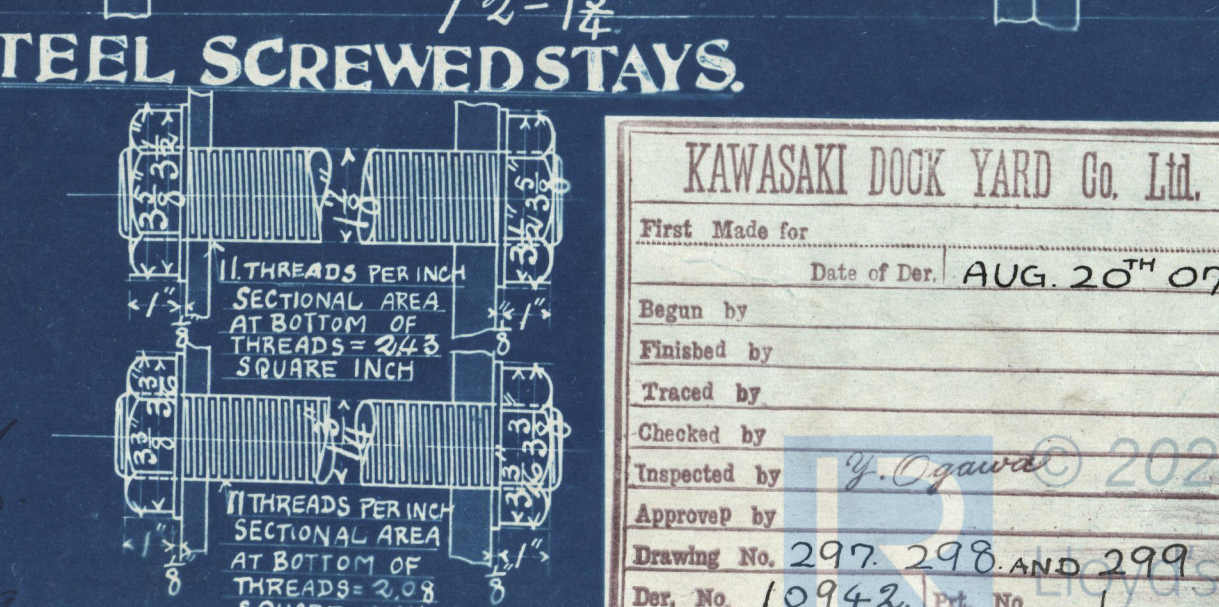 1/2 - 1 3/4
TEEL SCREWED STAYS.
11. THREADS PER INCH
SECTIONAL AREA
AT BOTTOM OF
THREADS = 2,43
SQUARE INCH
1"
1/8
1/8
1"
1 7/8"
11 THREADS PER INCH
SECTIONAL AREA
AT BOTTOM OF
THREADS = 2,08
1 3/4"
1"
1/8
1/8
1"
KAWASAKI DOCK YARD Co. Ltd.
First Made for
Date of Der. AUG. 20TH 07
Begun by
Finished by
Traced by
Checked by
Inspected by Y. Ogawa
Approved by
Drawing No. 297. 298. AND 299
Der. No. 10942. Prt. No. 1
© 202
Lloyd's